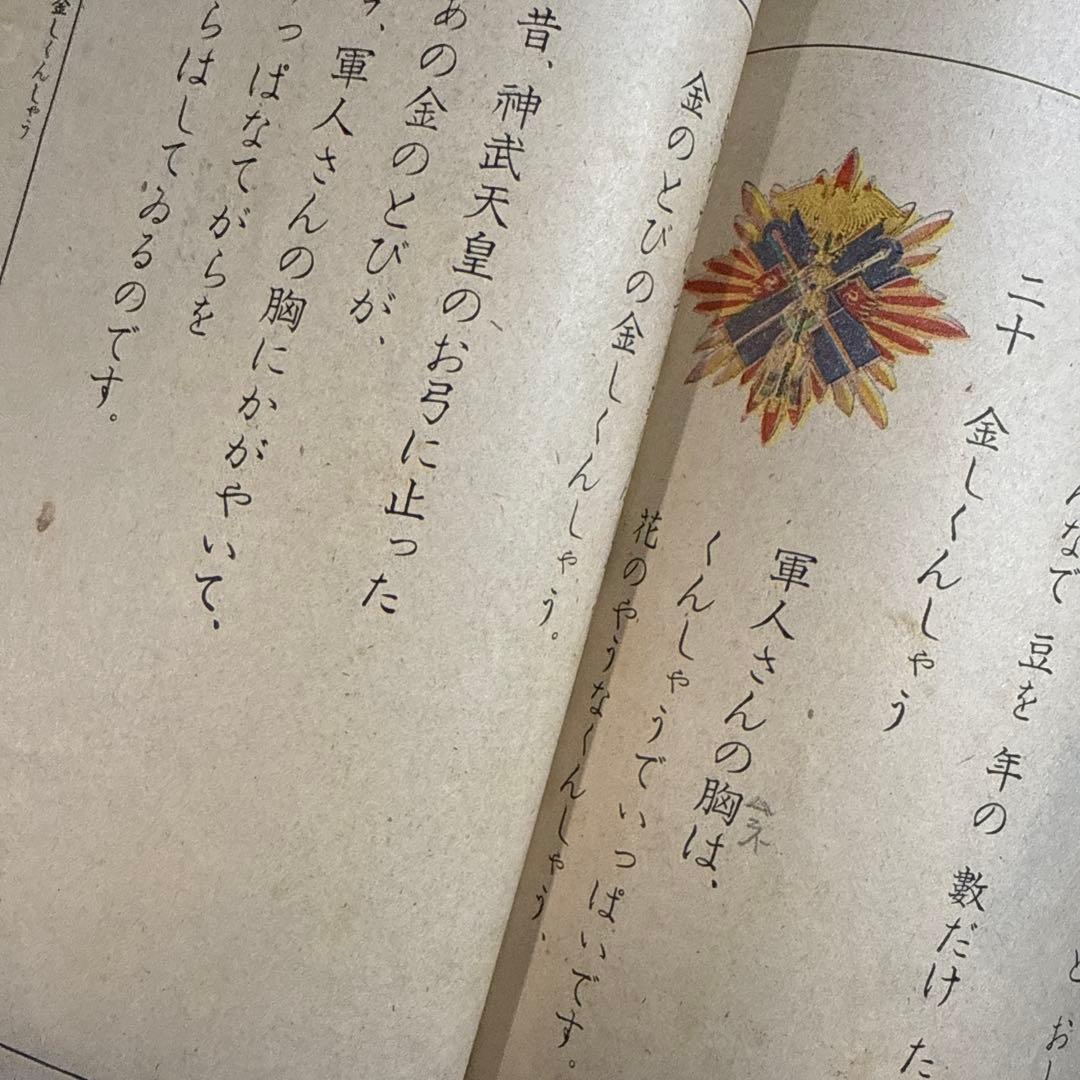 んなで 豆を 年の 數だけ た
二十 金しくんしゃう
軍人さんの胸は、
ムネ
くんしゃうでいっぱいです。
花のやうなくんしゃう、
金のとびの金しくんしゃう。
昔、神武天皇のお弓に止った
あの金のとびが、
軍人さんの胸にかがやいて、
っぱなてがらを
らはしてゐるのです。
金しくんしゃう